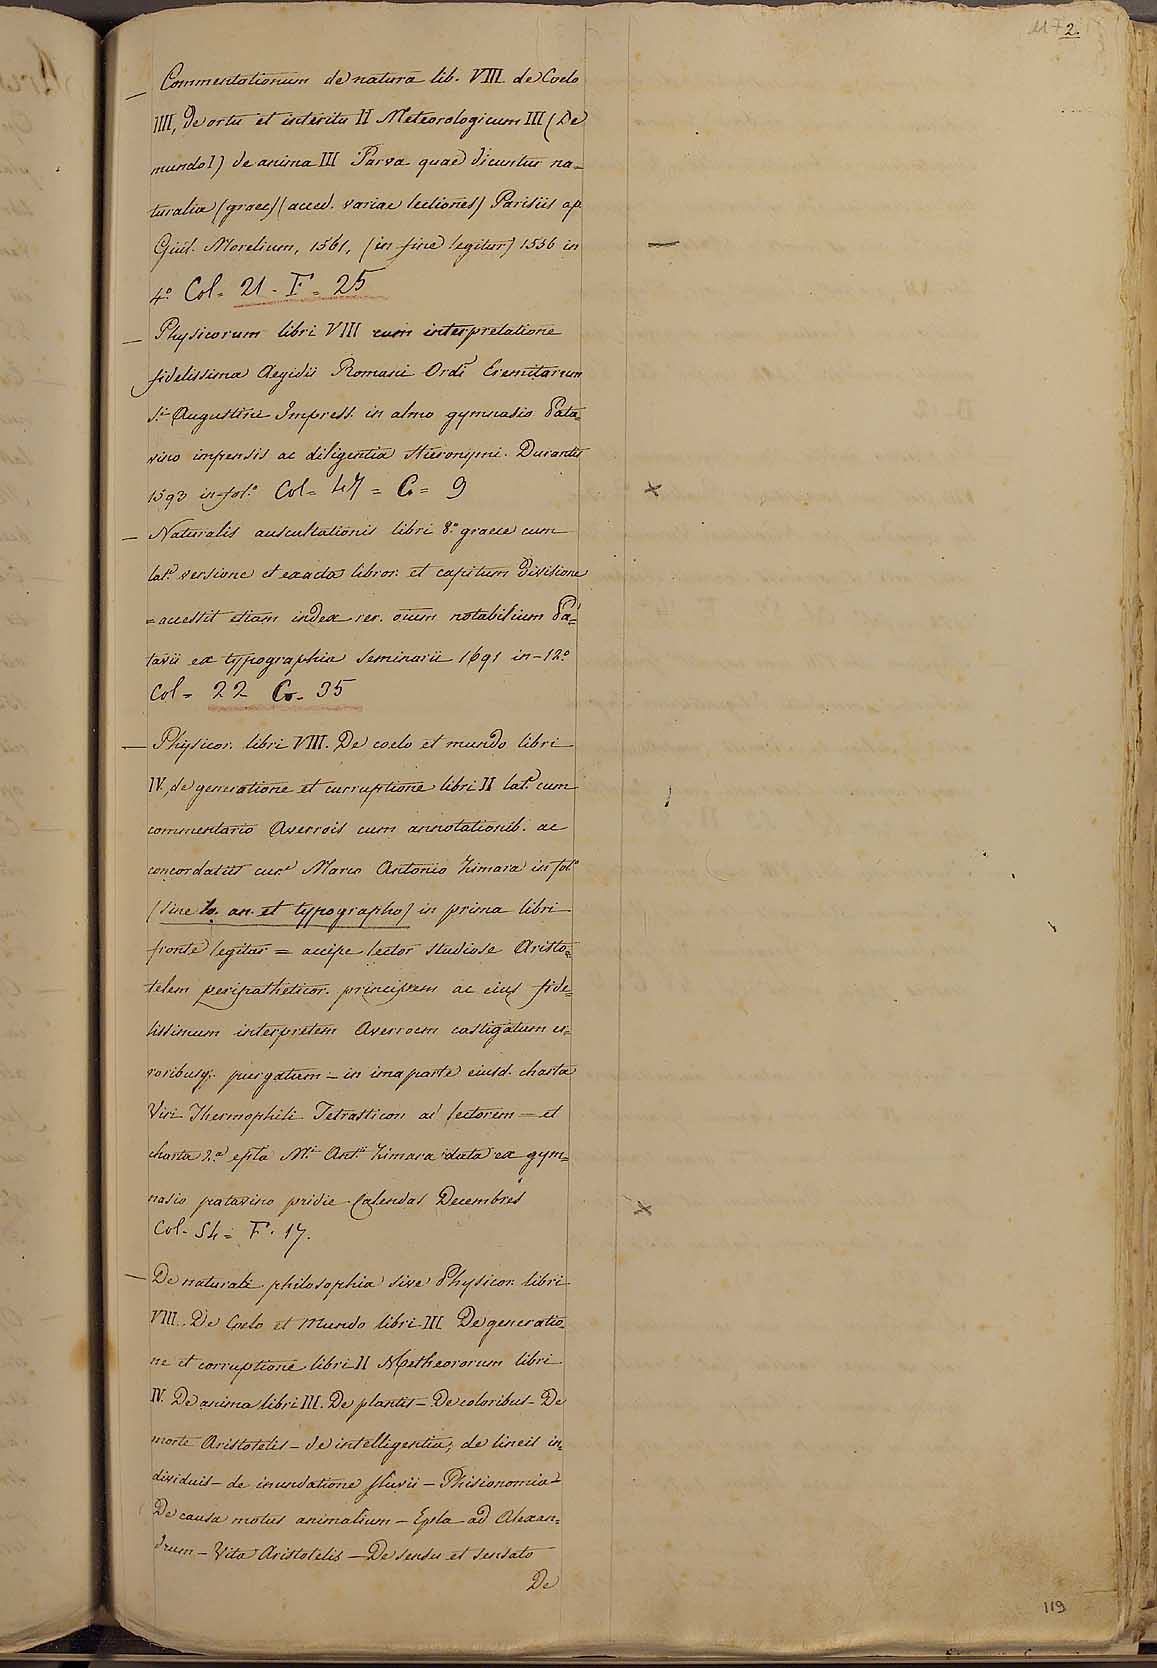 117 2.
— Commentationum de natura lib. VIII de Coelo
IIII, De ortu et interitu II Meteorologicum III (De
mundo I) de anima III Parva quae dicuntur na=
turalia (graec) (acced. variae lectiones) Parisiis ap
Guil. Morelium, 1561, (in fine legitur) 1556 in
4.° Col. 21 - F = 25
— Physicorum libri VIII cum interpretatione
fidelissima Aegidii Romani Ordi Eremitarum
S.ti Augustini Impress. in almo gymnasio Pata=
vino impensis ac diligentia Hieronymi. Durantis
1593 in-fol.° Col = 47 = C = 9
— Naturalis auscultationis libri 8.° graece cum
lat.a versione et exacta libror. et capitum divisione
= accessit etiam index rer. oium notabilium Pa=
tavii ex typographia seminarii 1691 in-12.°
Col = 22 C = 35
— Physicor. libri VIII. De coelo et mundo libri
IV., de generatione et curruptione libri II lat.e cum
commentario Averrois cum annotationib. ac
concordatiis cur.e Marco Antonio Zimara in fol.
(sine lo. an. et typographo) in prima libri
fronte legitur = accipe lector studiose Aristo=
telem peripatheticor. principem ac eius fide=
lissimum interpretem Averroem castigatum er=
roribusq; purgatum - in ima parte eiusd. charta
Viri Thermophili Tetrasticon ad lectorem = et
charta 2.a epla M.i Ant.i Zimara data ex gym=
nasio patavino pridie Calendas Decembres
Col- 54 = F. 17.
— De naturali philosophia sive Physicor. libri
VIII.. De Coelo et Mundo libri III De generatio=
ne et corruptione libri II Metheororum libri
IV. De anima libri III. De plantis - De coloribus - De
morte Aristotelis - de intelligentia; de lineis in=
dividuis - de inundatione fluvii - Phisionomia -
De causa motus animalium - Epla ad Alexan=
drum - Vita Aristotelis - De sensu et sensato
De
119